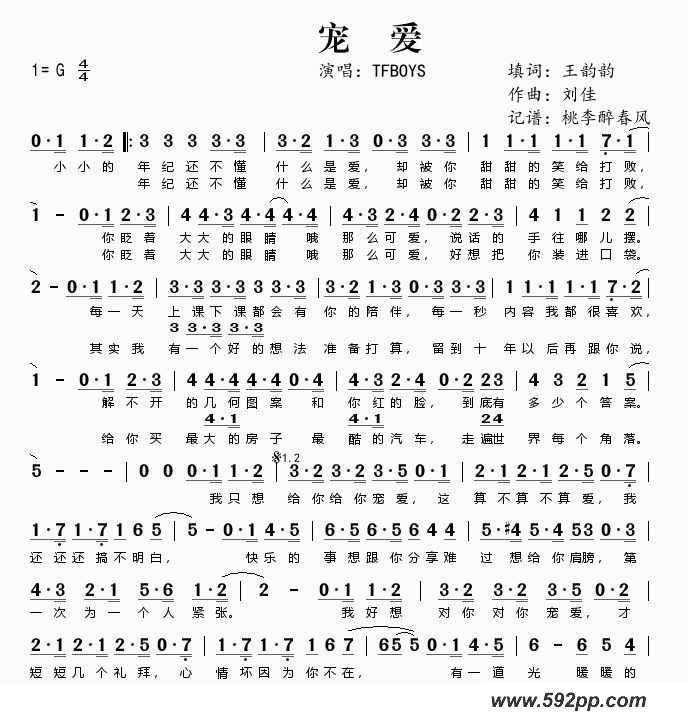 宠 爱
1=G 4/4
演唱：TFBOYS
填词：王韵韵
作曲：刘佳
记谱：桃李醉春风
0·1 1·2 |: 3 3 3 3·3 | 3·2 1·3 0·3 3·3 | 1 1·1 1·1 7·1 |
小小的 年纪还不懂 什么是爱，却被你 甜甜的笑给打败，
年纪还不懂 什么是爱，却被你 甜甜的笑给打败，
1 - 0·1 2·3 | 4·4 3·4 4·4 4·4 | 3·4 2·4 0·2 2·3 | 4 1 2 2 |
你眨着 大大的眼睛 哦 那么可爱，说话的 手往哪儿摆。
你眨着 大大的眼睛 哦 那么可爱，好想把 你装进口袋。
2 - 0·1 1·2 | 3·3 3·3 3·3 3·3 | 3·2 1·3 0·3 3·3 | 1·1 1·1 1·1 7·2 |
每一天 上课下课都会有 你的陪伴，每一秒 内容我都很喜欢，
3 3·3 3·3
其实我 有一个好的想法 准备打算，留到十年以后再跟你说，
1 - 0·1 2·3 | 4·4 4·4 4·4 4·4 | 4·3 2·4 0·2 23 | 4 3 2 1 5 |
解不开 的几何图案 和 你红的脸，到底有 多少个答案。
4·1 4·1 24
给你买 最大的房子 最 酷的汽车，走遍世 界每个角落。
5 - - - | 0 0 0·1 1·2 | 𝄋1.2 3·2 1·2 3·5 3·1 | 2·1 2·1 2·5 0·7 |
我只想 给你给你宠爱，这 算不算不算爱，我
1·7 1·7 1 6 5 | 5 - 0·1 4·5 | 6·5 6·5 6·2 4 4 | 5·#4 5·4 53 0·3 |
还还还搞不明白， 快乐的 事想跟你分享难 过想给你肩膀，第
4·3 2·1 5·6 1·2 | 2 - 0·1 1·2 | 3·2 1·2 3·5 3·1 |
一次为一个人紧张。 我好想 对你对你宠爱，才
2·1 2·1 2·5 0·7 | 1·7 1·7 1 6 7 | 65 5 0·1 4·5 | 6 - 6·5 5·4 |
短短几个礼拜，心 情坏因为你不在， 有一道 光 暖暖的
www.592pp.com